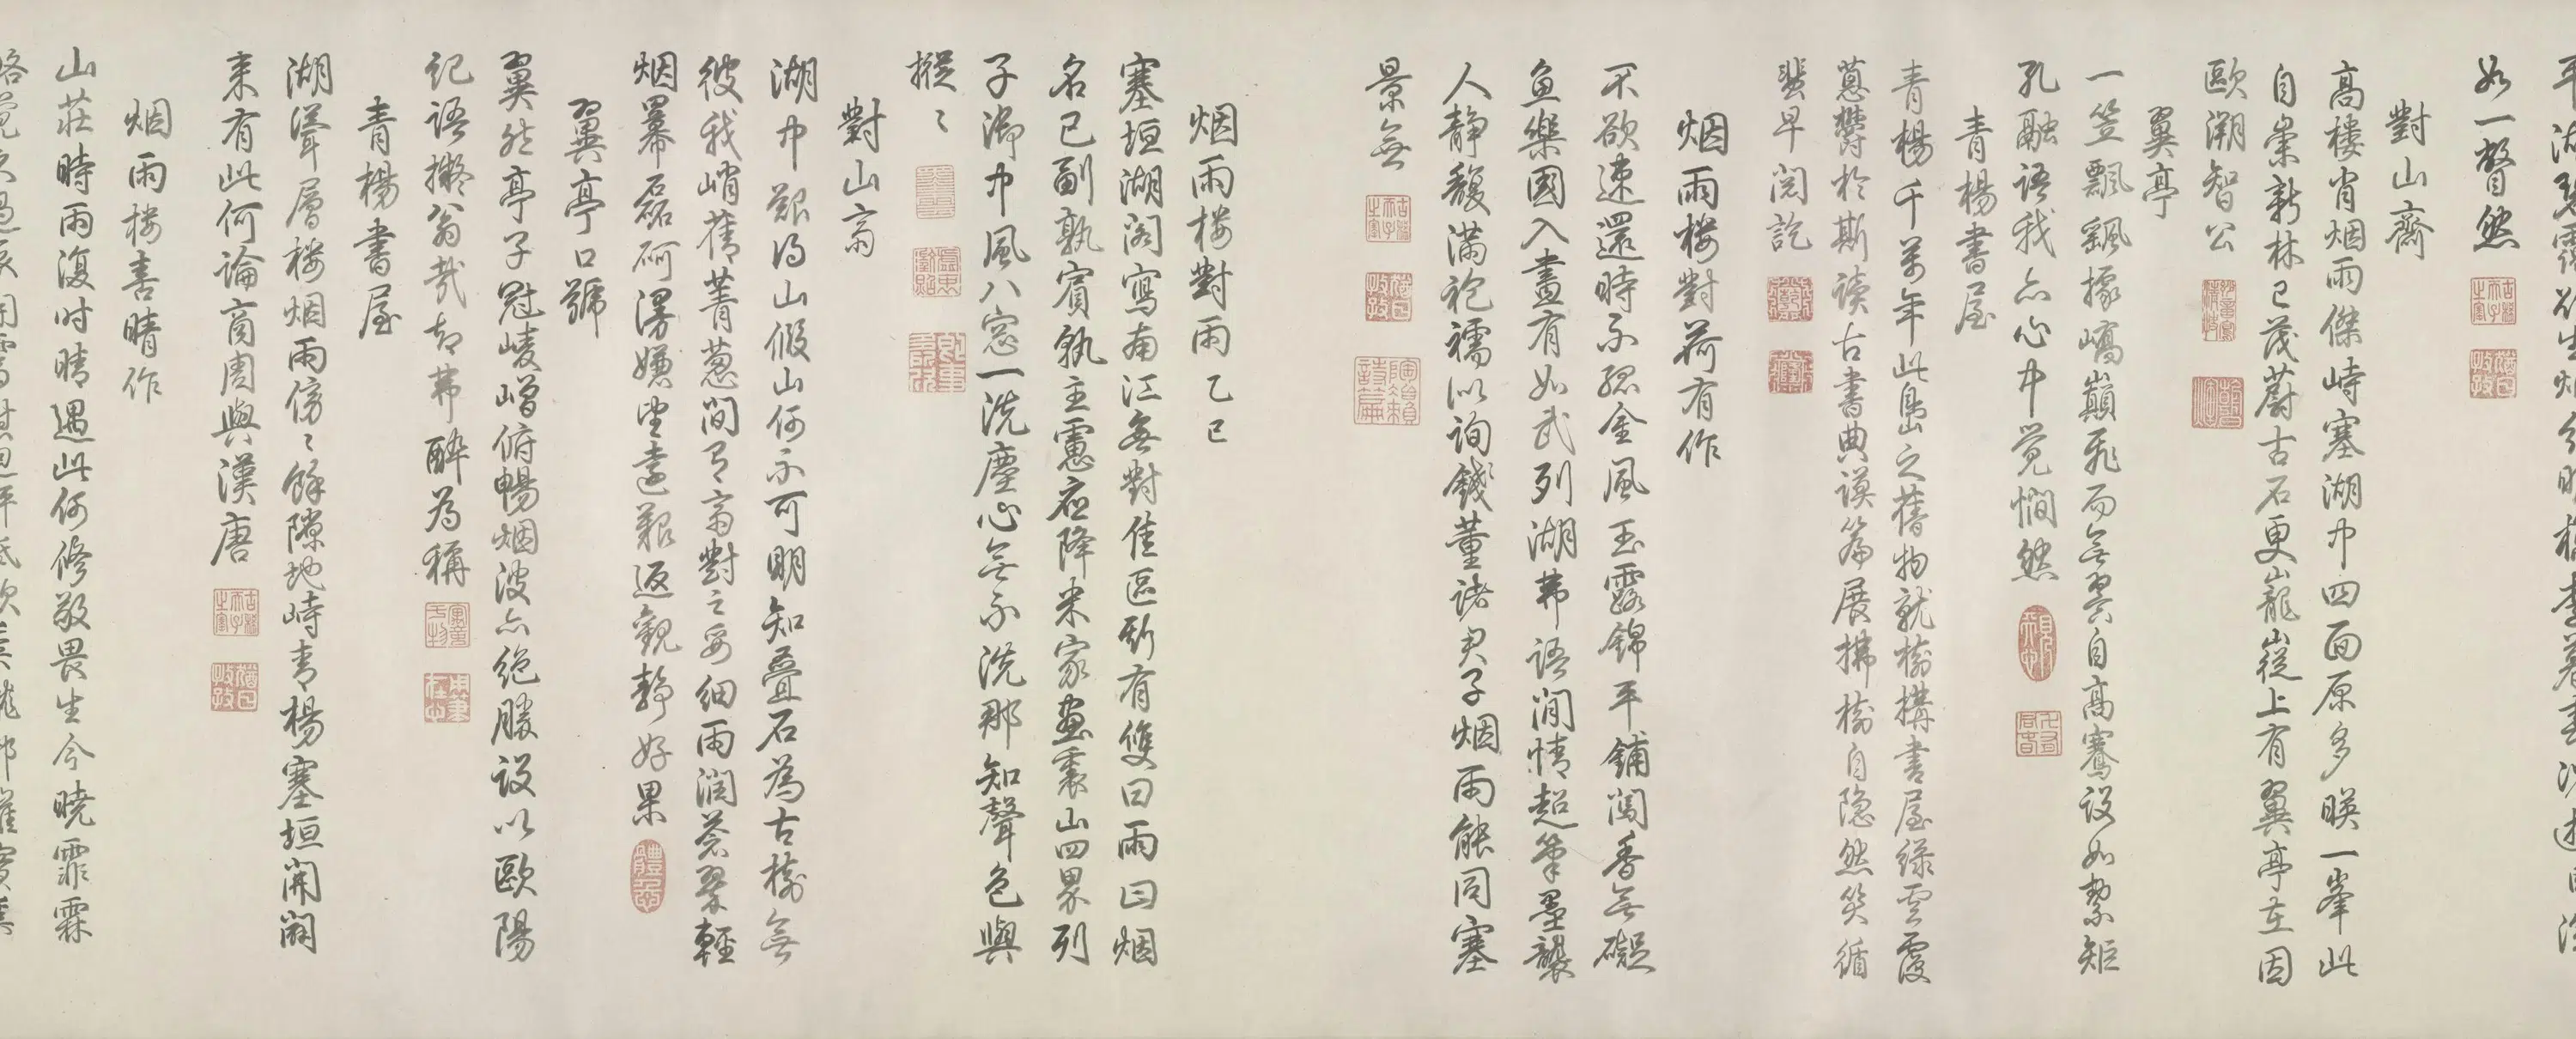 如一瞥然
對山齋
高樓肖烟雨傑峙塞湖中四面原多暎一峯此
自崇新林已茂蔚古石更巃嵸上有翼亭在因
歐溯智公
翼亭
一笠飄飄據嶠巔飛而無翼自高騫設如絜矩
孔融語我亦心中覺憪然
青楊書屋
青楊千萬年此島之舊物就樹構書屋綠雲霞
蔥欝於斯讀古書典謨篇展拂樹自隱然笑循
蜚早閱訖
烟雨樓對荷有作
不欲速還時不孤金風玉露錦平鋪聞香無礙
魚樂國入畫有如武列湖荐語閒情超筆墨襲
人靜馥滿袍襦似詢錢董諸君子烟雨能同塞
景無
烟雨樓對雨乙巳
塞垣湖閣寫南江無對佳區斯有雙曰雨曰烟
名已副孰賓孰主慮應降米家畫裏山四界列
子御中風八窓一洗塵心無不洗那知聲色與
摐〻
對山齋
湖中艱得山假山何不可明知疊石為古樹無
彼我峭蒨菁蔥間乃齋對之妥細雨潤蒼翠輕
烟羃磊砢漫嫌望遠艱返觀靜好果
翼亭口號
翼然亭子冠崚嶒俯暢烟波亦絕勝設以歐陽
記語擬翁哉却弗醉為稱
青楊書屋
湖聳層樓烟雨傍〻餘隙地峙青楊塞垣開闢
来有此何論商周與漢唐
烟雨樓喜晴作
山莊時雨復時晴遇此何修敬畏生今曉霏霖